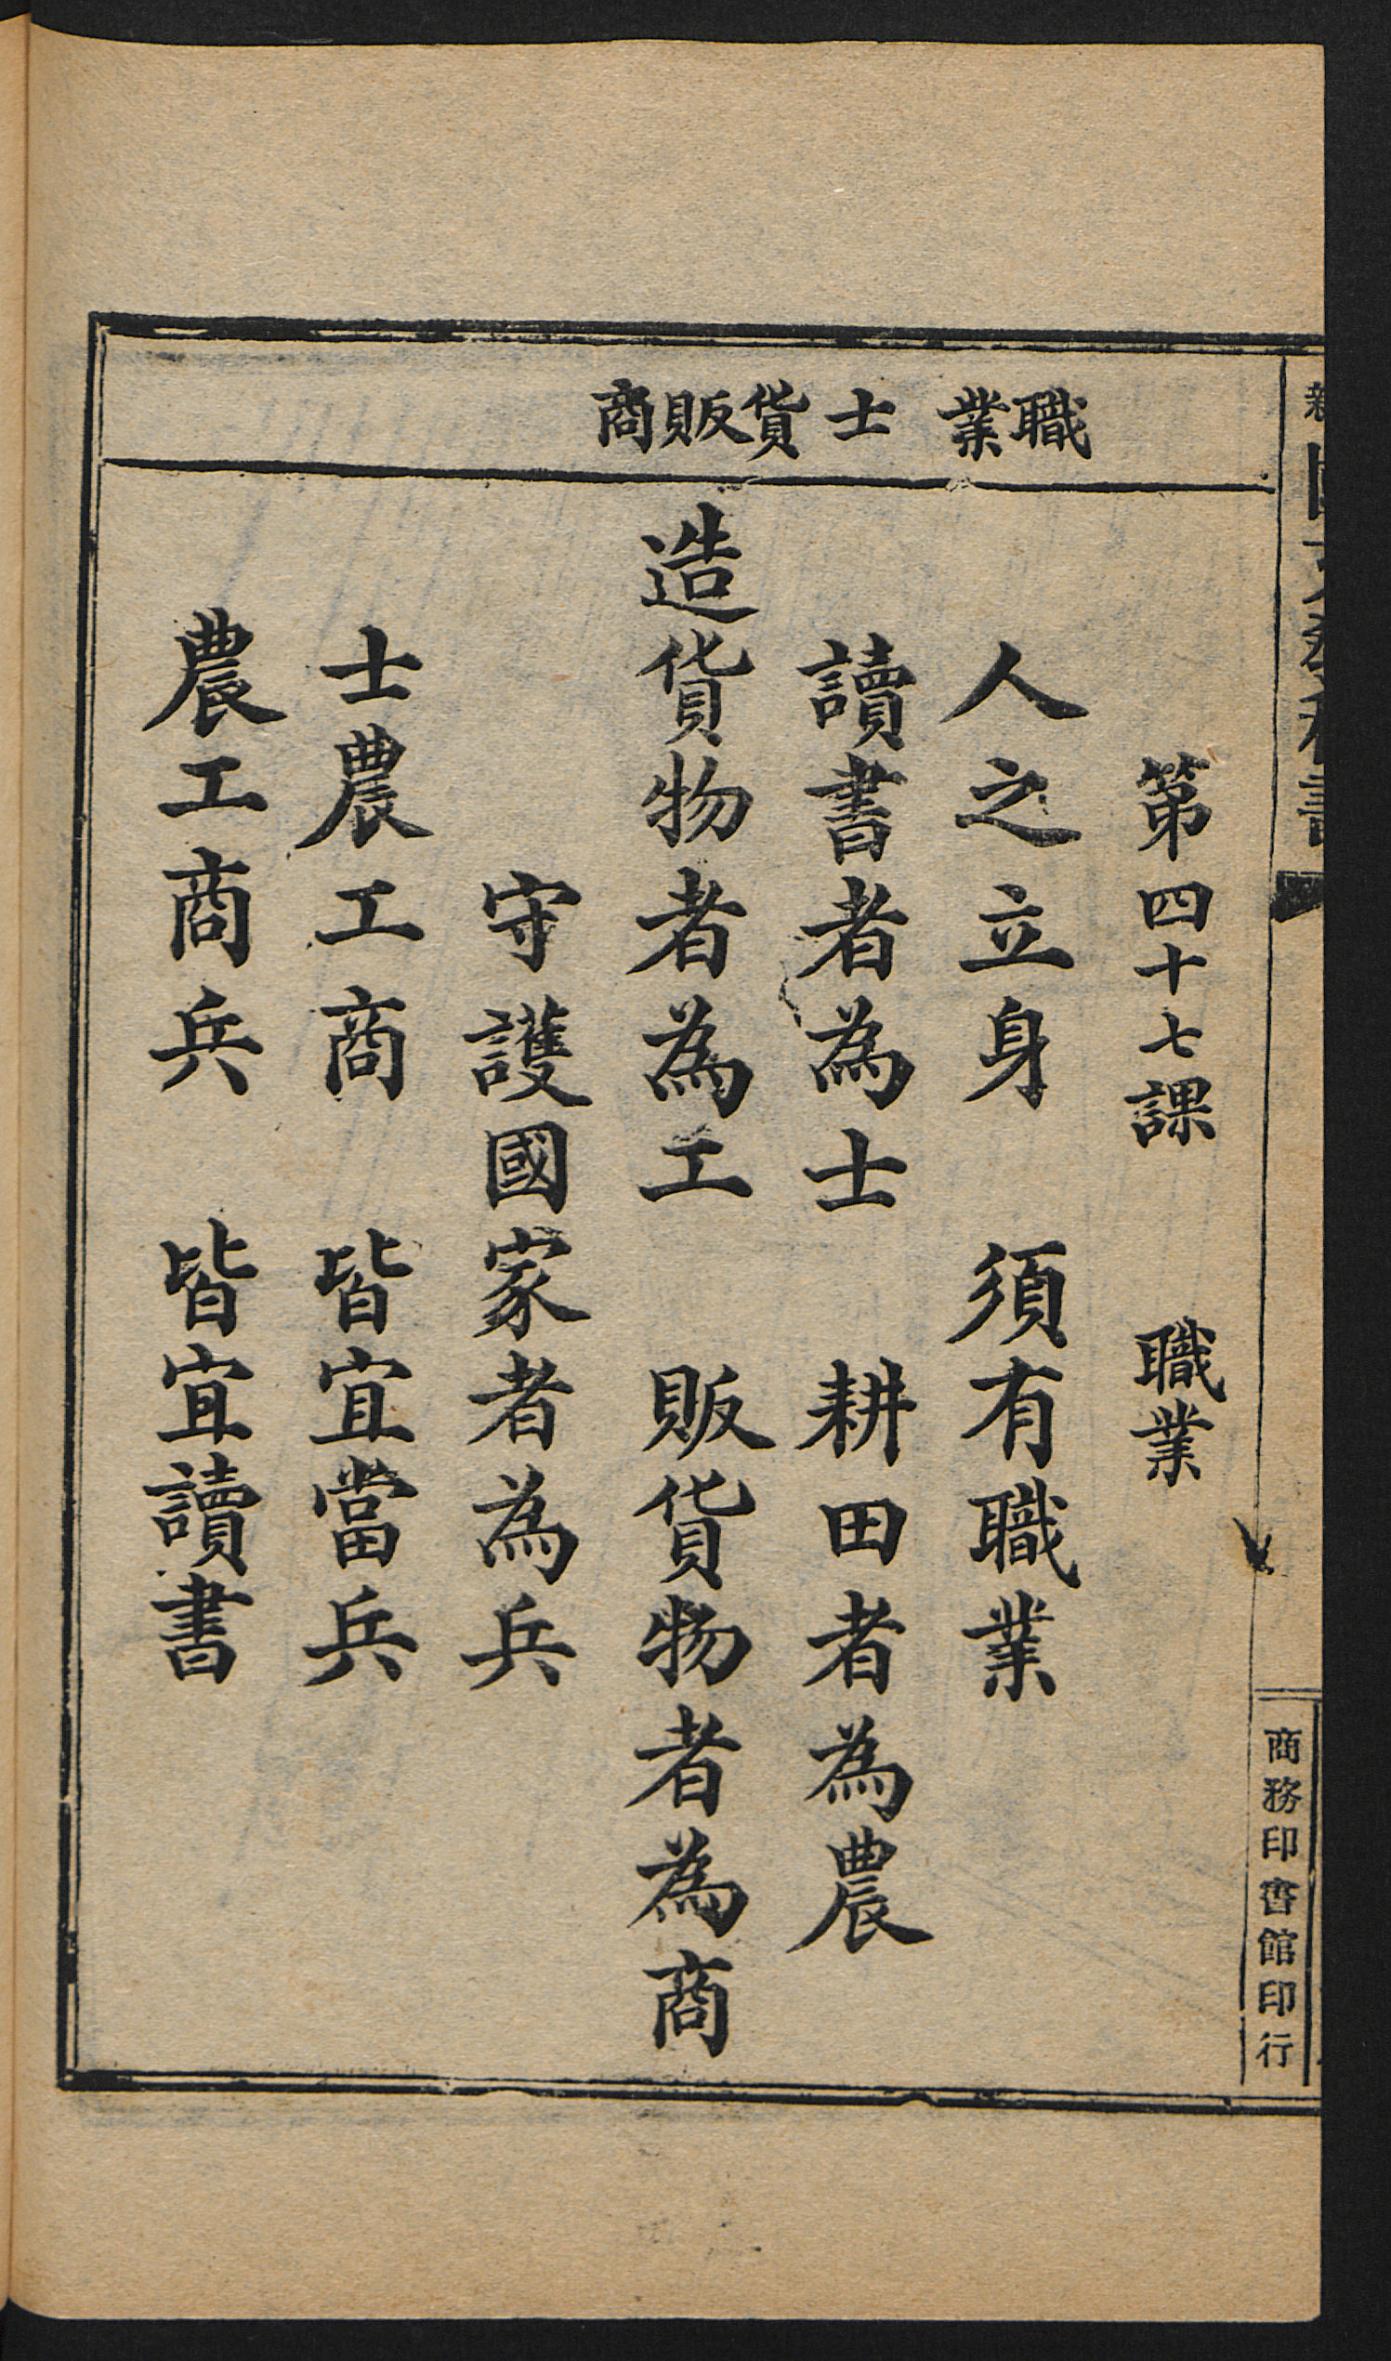 職業 士 貨販商
第四十七課 職業
人之立身 須有職業
讀書者為士 耕田者為農
造貨物者為工 販貨物者為商
守護國家者為兵
士農工商 皆宜當兵
農工商兵 皆宜讀書
商務印書館印行